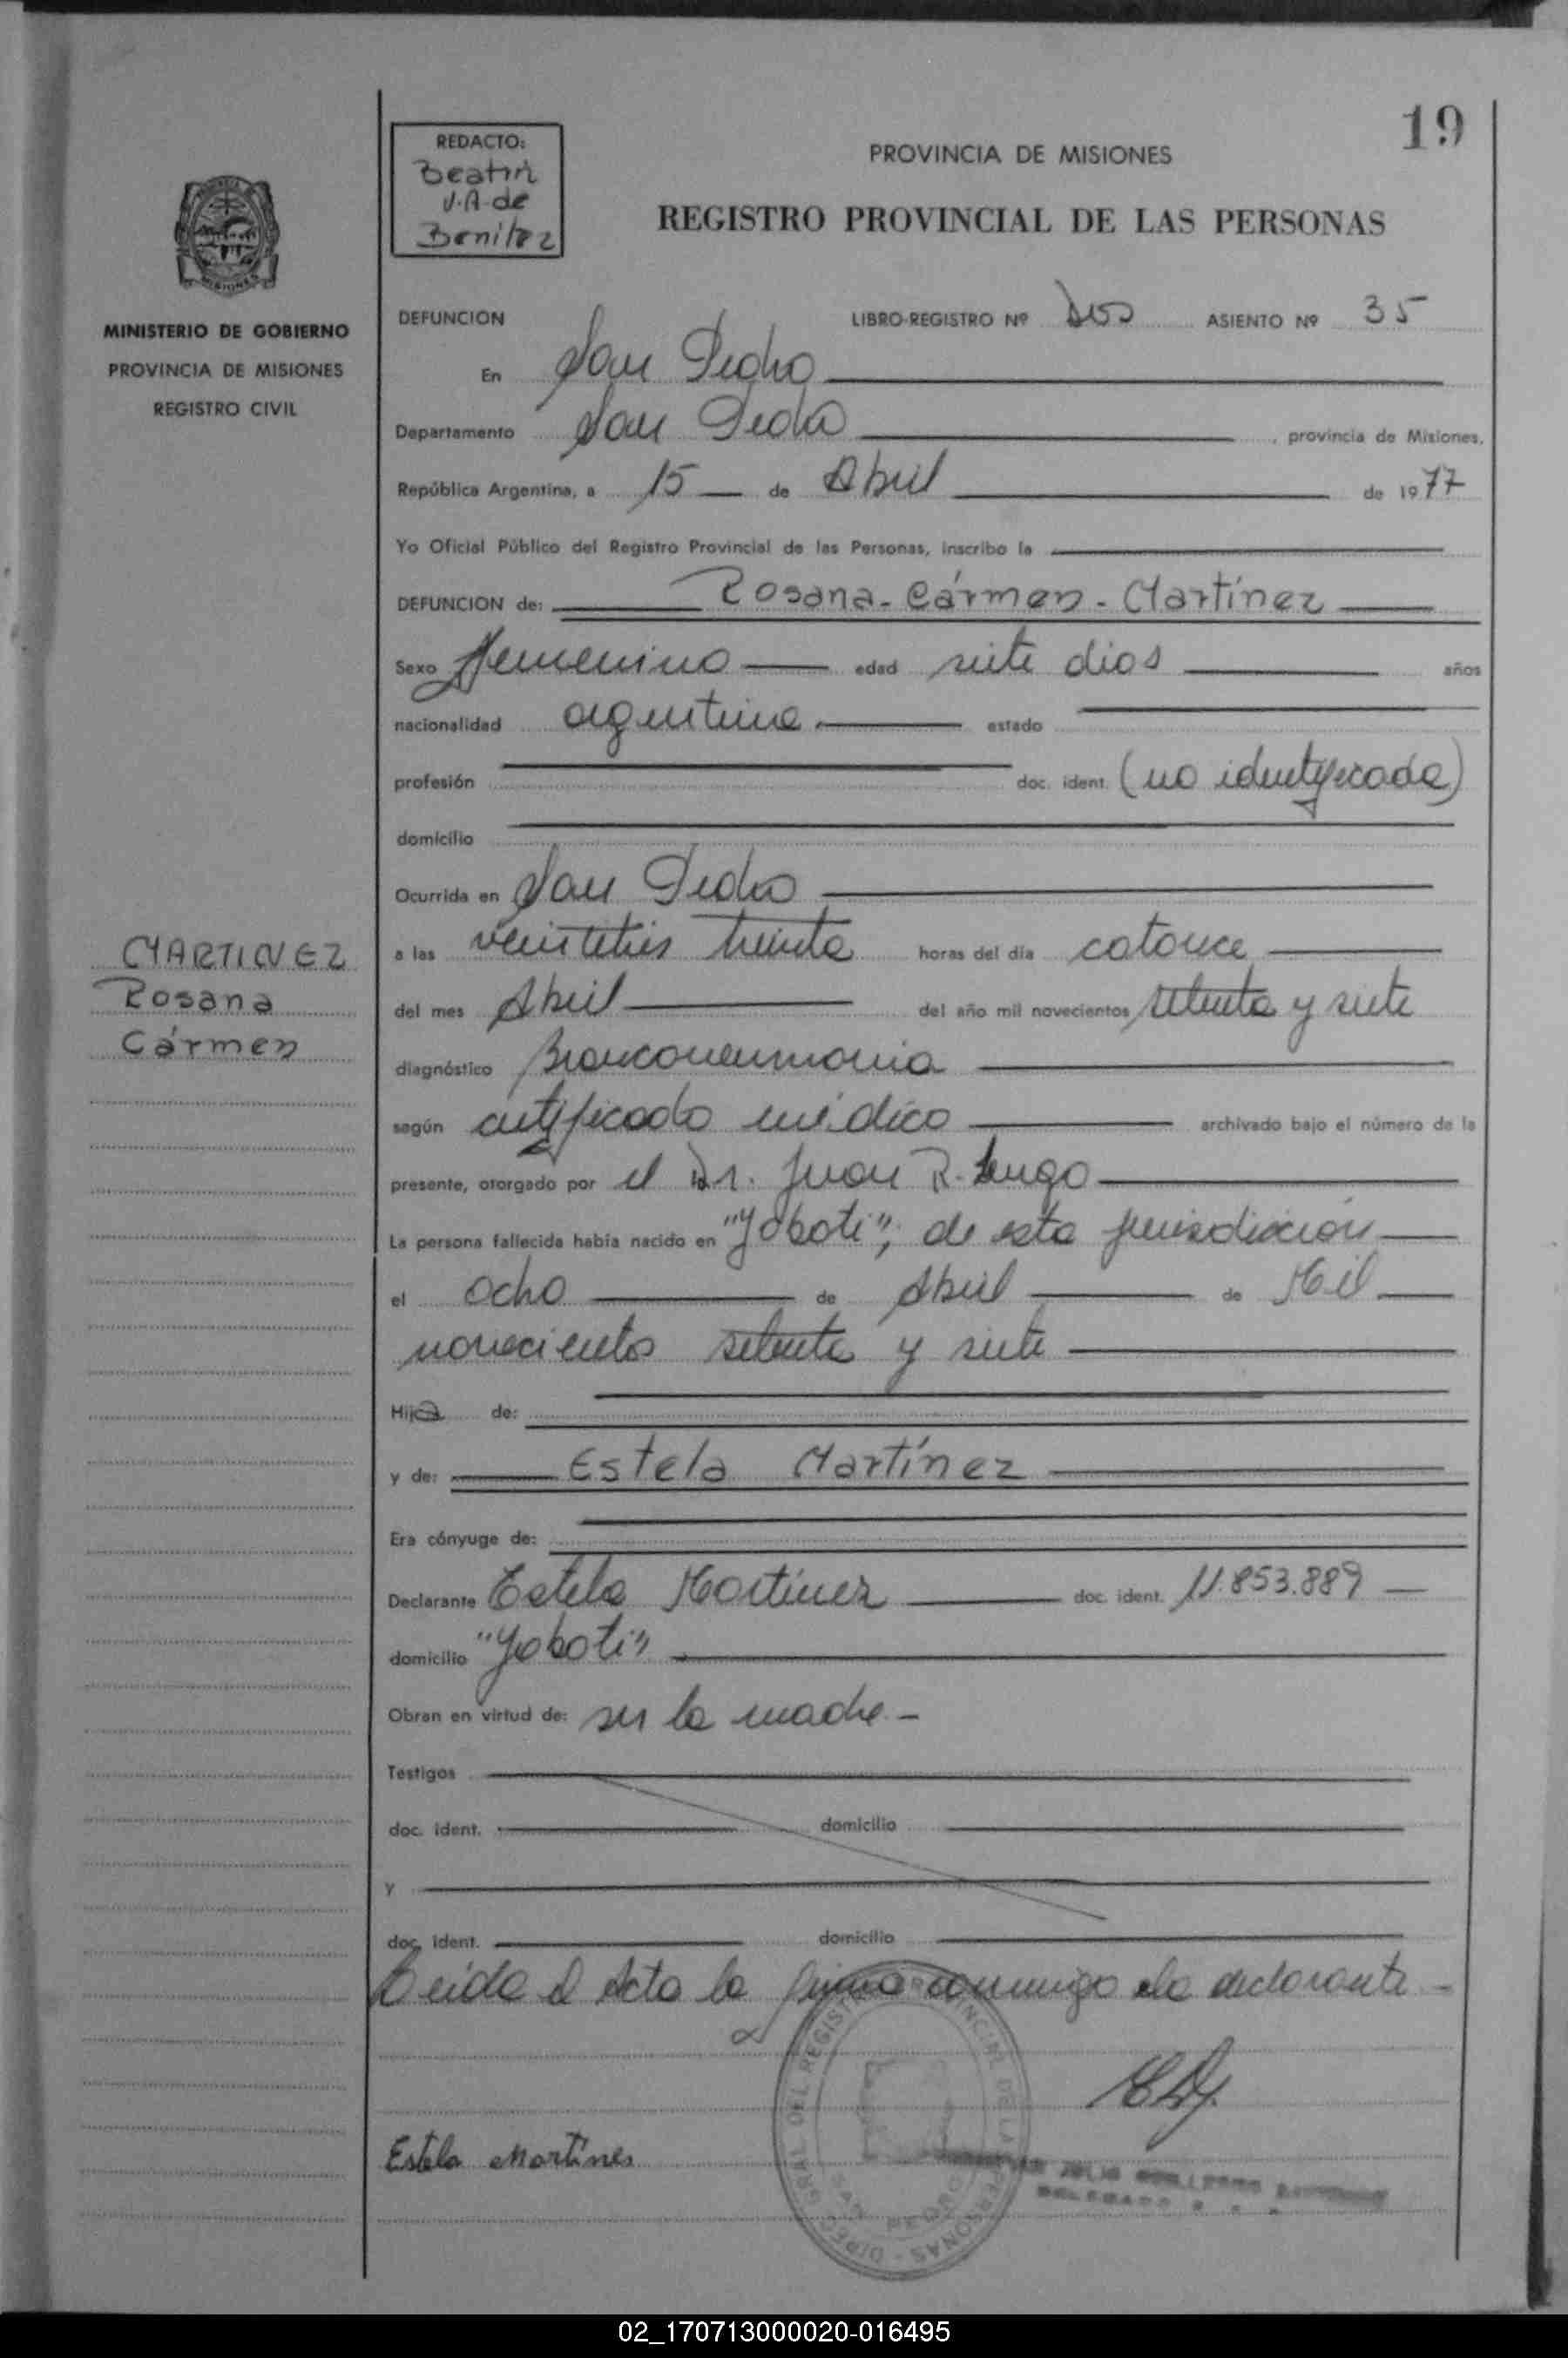 19
REDACTO:
Beatriz
V.A. de
Benitez
PROVINCIA DE MISIONES
REGISTRO PROVINCIAL DE LAS PERSONAS
MINISTERIO DE GOBIERNO
PROVINCIA DE MISIONES
REGISTRO CIVIL
DEFUNCION LIBRO-REGISTRO Nº Dos ASIENTO Nº 35
En San Pedro
Departamento San Pedro, provincia de Misiones,
República Argentina, a 15 de Abril de 1977
Yo Oficial Público del Registro Provincial de las Personas, inscribo la
DEFUNCION de: Rosana - Cármen - Martínez
Sexo Femenino edad siete dias años
nacionalidad argentina estado
profesión doc. ident. (no identificada)
domicilio
Ocurrida en San Pedro
MARTINEZ
Rosana
Cármen
a las veintitrés treinta horas del día catorce
del mes Abril del año mil novecientos setenta y siete
diagnóstico Bronconeumonia
según certificado médico archivado bajo el número de la
presente, otorgado por el Dr. Juan R. Lugo
La persona fallecida había nacido en "Yaboti", de esta jurisdicción
el ocho de Abril de Mil
novecientos setenta y siete
Hija de:
y de: Estela Martínez
Era cónyuge de:
Declarante Estela Martínez doc. ident. 11.853.889
domicilio "Yaboti"
Obran en virtud de: ser la madre.-
Testigos
doc. ident. domicilio
y
doc. ident. domicilio
Leida el Acta la firma conmigo la declarante -
Estela Martines
DIREC GRAL DEL REGISTRO PROVINCIAL DE LAS PERSONAS
SAN PEDRO
02_170713000020-016495